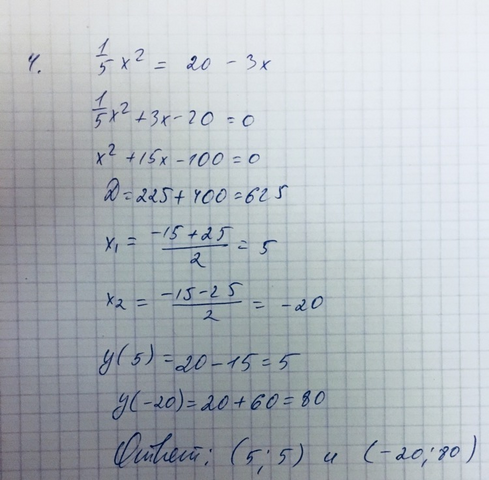 4. 1/5 x² = 20 - 3x
1/5 x² + 3x - 20 = 0
x² + 15x - 100 = 0
D = 225 + 400 = 625
x₁ = (-15 + 25)/2 = 5
x₂ = (-15 - 25)/2 = -20
y(5) = 20 - 15 = 5
y(-20) = 20 + 60 = 80
Ответ: (5; 5) и (-20; 80)